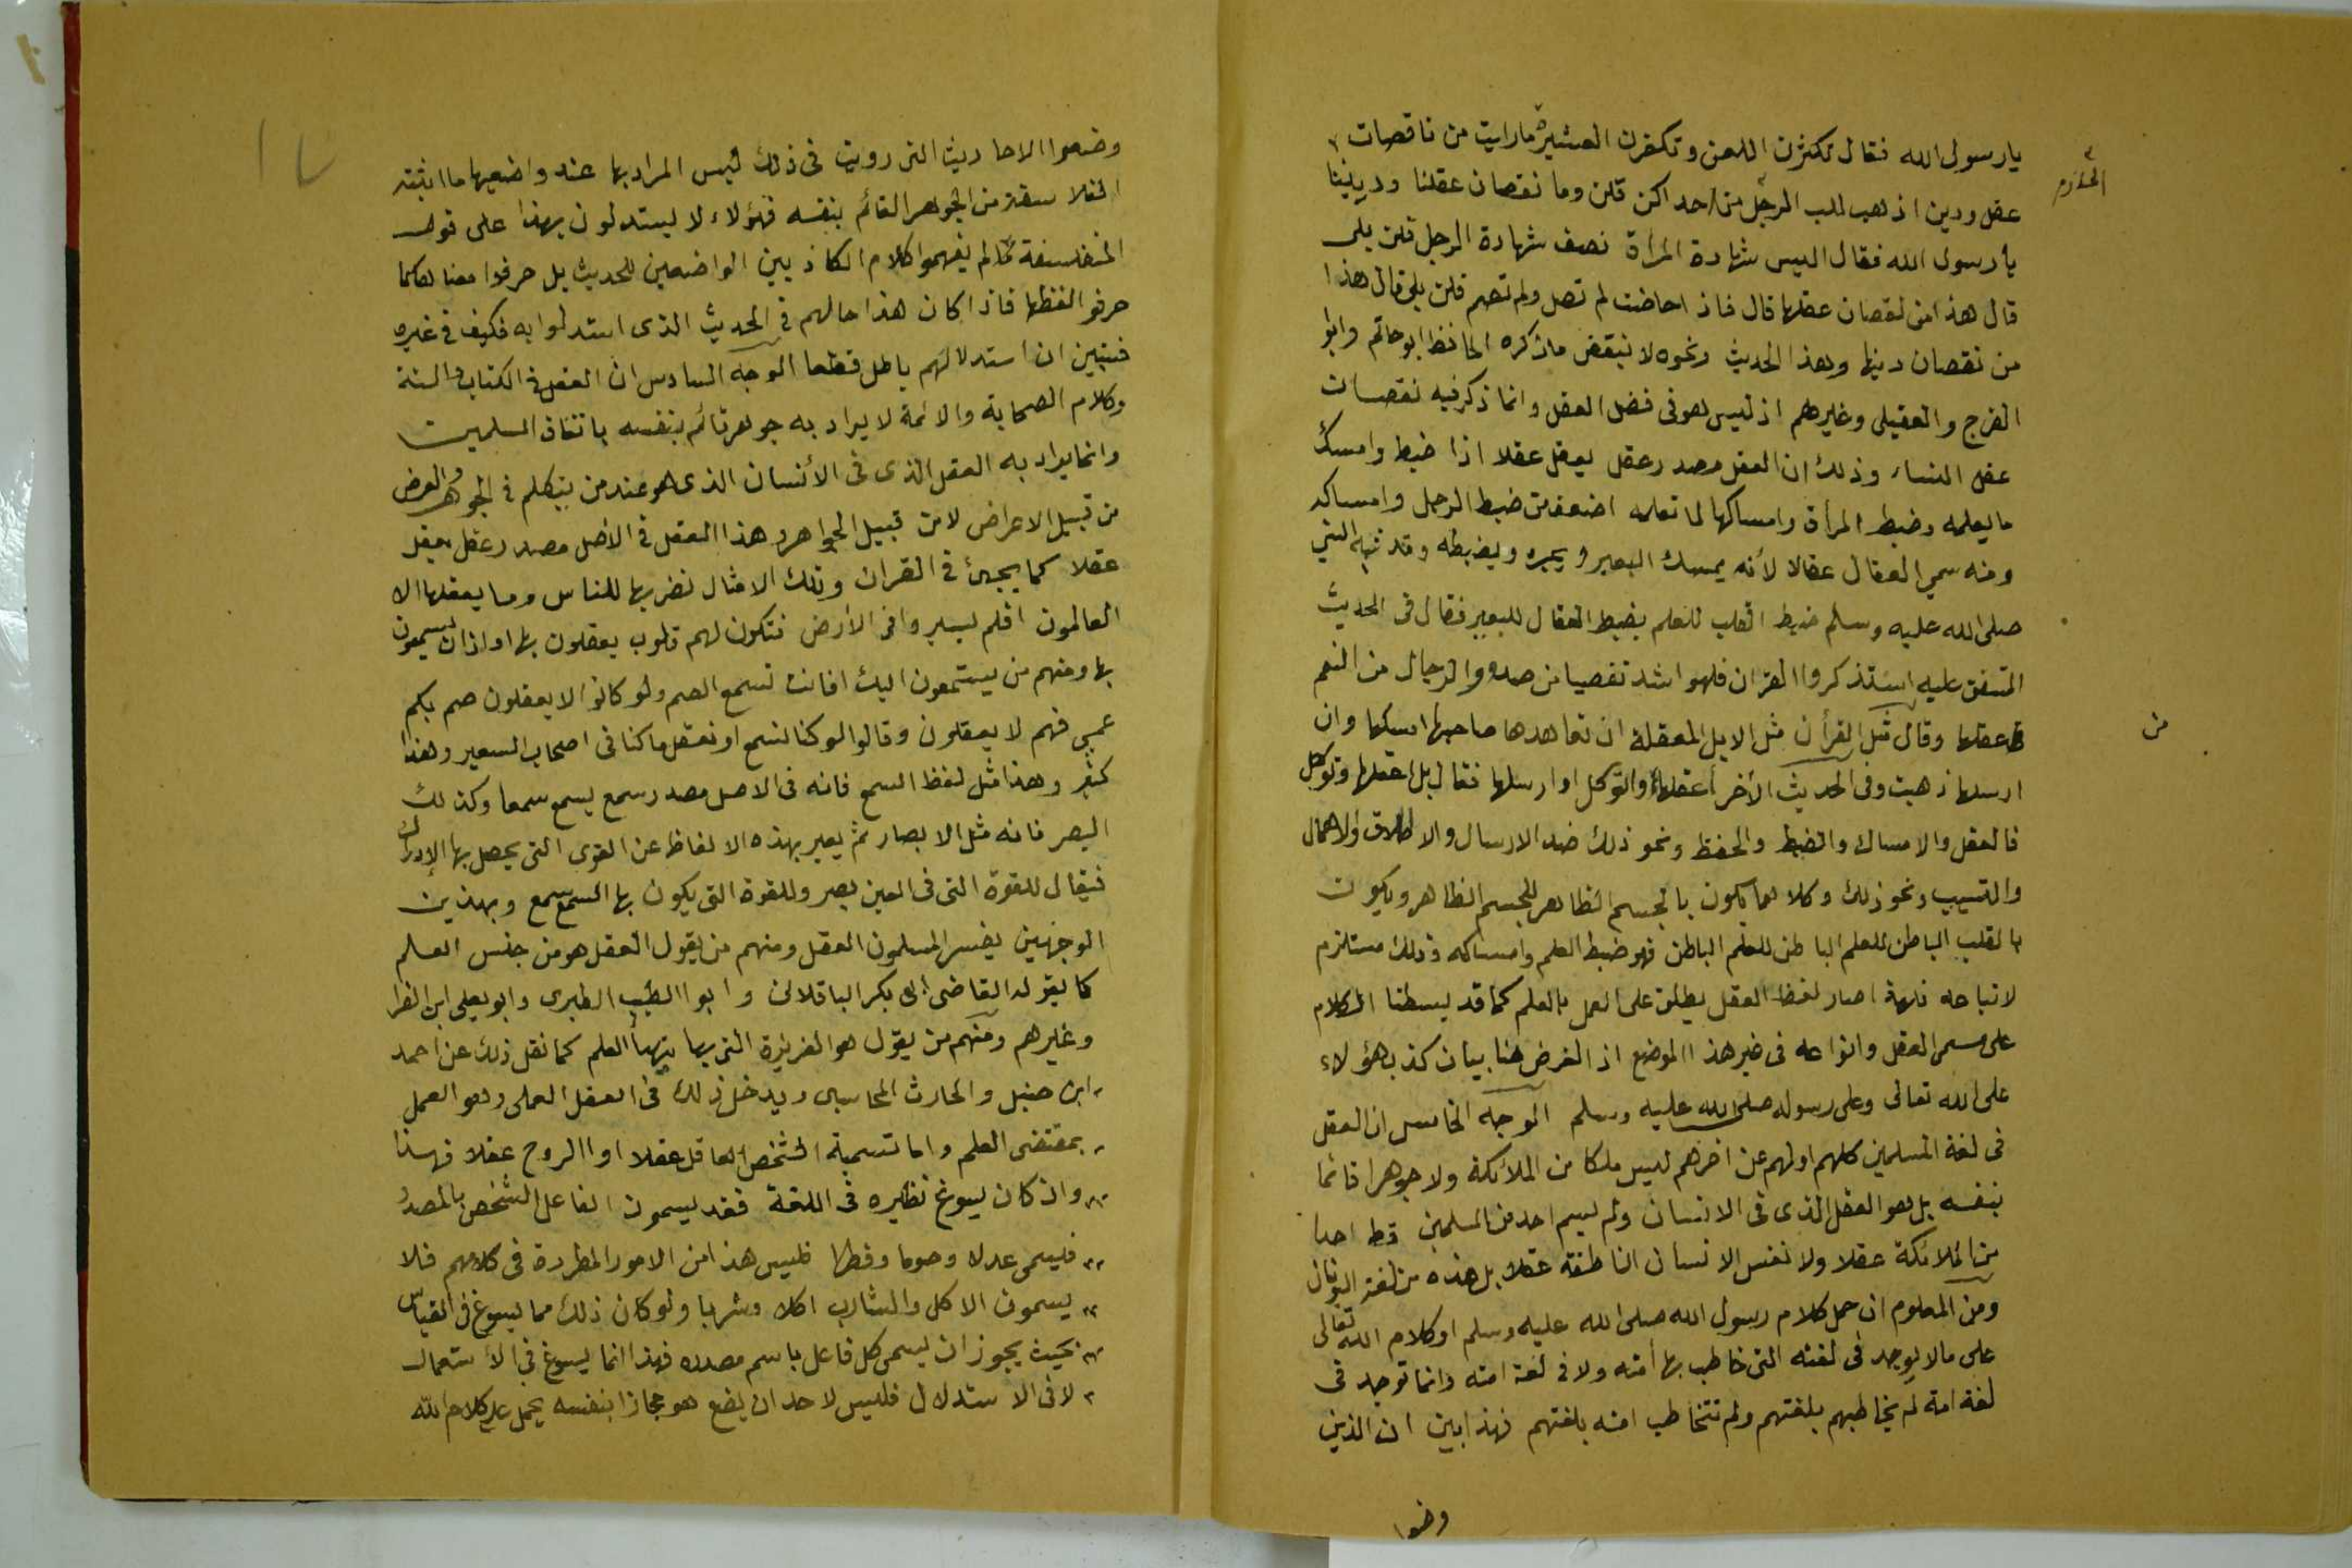 يارسول الله فقال تكثرن اللعن وتكفرن العشير ما رايت من ناقصات
الحازم
عقل ودين اذهب للب الرجل من احداكن قلن وما نقصان عقلنا وديننا
يا رسول الله فقال اليس شهادة المرأة نصف شهادة الرجل قلن بلى
قال هذا من نقصان عقلها قال فاذا حاضت لم تصل ولم تصم قلن بلى قال هذا
من نقصان دينها وهذا الحديث ونحوه لا ينقض ما ذكره الحافظ ابو حاتم وابو
الفرج والعقيلى وغيرهم اذ ليس هو فى فضل العقل وانما ذكر فيه نقصان
عقل النساء وذلك ان العقل مصدر عقل يعقل عقلا اذا ضبط وامسك
ما يعلمه وضبط المرأة وامساكها لما تعلمه اضعف من ضبط الرجل وامساكه
ومنه سمي العقال عقالا لأنه يمسك البعير ويجره ويضبطه وقد شبه النبي
صلى الله عليه وسلم ضبط القلب للعلم بضبط العقال للبعير فقال فى الحديث
المتفق عليه استذكروا القرآن فلهو اشد تفصيا من صدور الرجال من النعم
من
عقلها وقال مثل القرأن مثل الابل المعقلة ان تعاهدها صاحبها امسكها وان
ارسلها ذهبت وفى الحديث الأخر أعقلها والتوكل او ارسلها فقال بل اعقلها وتوكل
فالعقل والامساك والضبط والحفظ ونحو ذلك ضد الارسال والاطلاق والاهمال
والتسيب ونحو ذلك وكلاهما يكون بالجسم الظاهر للجسم الظاهر ويكون
بالقلب الباطن للعلم الباطن فهو ضبط العلم وامساكه وذلك مستلزم
لاتباعه فلهذا صار لفظ العقل يطلق على العمل بالعلم كما قد بسطنا الكلام
على مسمى العقل وانواعه فى غير هذا الموضع اذ الغرض هنا بيان كذب هؤلاء
على الله تعالى وعلى رسوله صلى الله عليه وسلم الوجه الخامس ان العقل
فى لغة المسلمين كلهم اولهم عن اخرهم ليس ملكا من الملائكة ولا جوهرا قائما
بنفسه بل هو العقل الذى فى الانسان ولم يسم احد من المسلمين قط احدا
من الملائكة عقلا ولا نفس الانسان الناطقة عقلا بل هذه من لغة اليونان
ومن المعلوم ان حمل كلام رسول الله صلى الله عليه وسلم او كلام الله تعالى
على ما لا يوجد فى لغته التى خاطب بها أمته ولا فى لغة امته وانما توجد فى
لغة امة لم يخاطبهم بلغتهم ولم تتخاطب امته بلغتهم فهذا يبين ان الذين
وضعوا
وضعوا الاحاديث التى رويت فى ذلك ليس المراد بها عند واضعيها ما اثبته
الفلاسفة من الجوهر القائم بنفسه فهؤلاء لا يستدلون بهذا على قول
المتفلسفة لم يفهموا كلام الكاذبين الواضعين للحديث بل حرفوا معناه كما
حرفوا لفظها فاذا كان هذا حالهم فى الحديث الذى استدلوا به فكيف فى غيره
فتبين ان استدلالهم باطل قطعا الوجه السادس ان العقل فى الكتاب والسنة
وكلام الصحابة والائمة لا يراد به جوهر قائم بنفسه باتفاق المسلمين
وانما يراد به العقل الذى فى الأنسان الذى هو عند من يتكلم فى الجوهر والعرض
من قبيل الاعراض لا من قبيل الجواهر وهذا العقل فى الأصل مصدر عقل يعقل
عقلا كما يجيئ فى القران وتلك الامثال نضربها للناس وما يعقلها الا
العالمون افلم يسيروا فى الأرض فتكون لهم قلوب يعقلون بها او اذان يسمعون
بها ومنهم من يستمعون اليك افانت تسمع الصم ولو كانوا لا يعقلون صم بكم
عمي فهم لا يعقلون وقالوا لو كنا نسمع او نعقل ما كنا فى اصحاب السعير وهذا
كثير وهذا مثل لفظ السمع فانه فى الاصل مصدر سمع يسمع سمعا وكذلك
البصر فانه مثل الابصار ثم يعبر بهذه الالفاظ عن القوى التى يحصل بها الإدراك
فيقال للقوة التى فى العين بصر وللقوة التى يكون بها السمع سمع وبهذين
الوجهين يفسر المسلمون العقل ومنهم من يقول العقل هو من جنس العلم
كما يقوله القاضى ابى بكر الباقلانى وابو الطيب الطبرى وابو يعلى ابن الفرا
وغيرهم ومنهم من يقول هو الغريزة التى بها يتهيأ العلم كما نقل ذلك عن احمد
ابن حنبل والحارث المحاسبى ويدخل ذلك فى العقل العملى وهو العمل
بمقتضى العلم واما تسمية الشخص العاقل عقلا او الروح عقلا فهذا
وان كان يسوغ نظيره فى اللغة فقد يسمون الفاعل الشخص بالمصدر
فيسمى عدلا وصوما وفطرا فليس هذا من الامور المطردة فى كلامهم فلا
يسمون الاكل والشارب اكلا وشربا ولو كان ذلك مما يسوغ فى القياس
بحيث يجوز ان يسمى كل فاعل باسم مصدره فهذا انما يسوغ فى الأستعمال
لا فى الاستدلال فليس لاحد ان يضع هو مجازا بنفسه يحمل عليه كلام الله